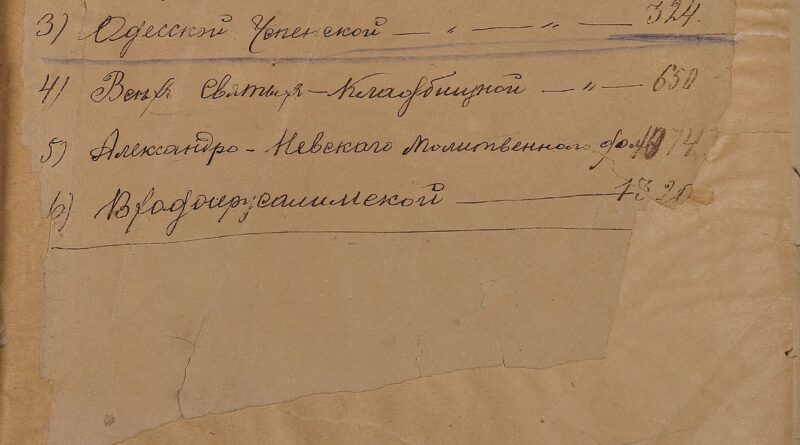 3) Одесской Успенской — „ — „ — 324.
4) Всѣхъ Святыхъ – Кладбищной — „ — 650
5) Александро – Невскаго Молитвенного дома 1074
6) Входоіерусалимской — 1320